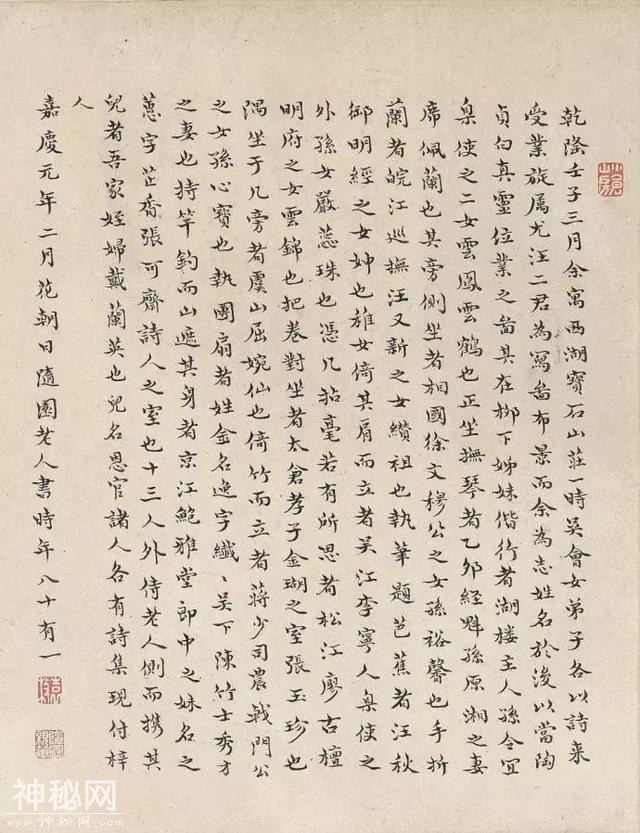 乾隆壬子三月余寓西湖寶石山莊一時吳會女弟子各以詩来
受業旋属尤汪二君為寫啚布景而余為志姓名於後以當陶
貞白真靈位業之啚其在柳下姊妹偕行者湖楼主人孫令宜
臬使之二女雲鳳雲鶴也正坐撫琴者乙卯經魁孫原湘之妻
席佩蘭也其旁側坐者相國徐文穆公之女孫裕馨也手折
蘭者皖江巡撫汪又新之女纘祖也執筆題芭蕉者汪秋
御明經之女妽也稚女倚其肩而立者吴江李寧人臬使之
外孫女嚴蕊珠也憑几拈毫若有所思者松江廖古檀
明府之女雲錦也把卷對坐者太倉孝子金瑚之室張玉珍也
隅坐于几旁者虞山屈婉仙也倚竹而立者蔣少司農戟門公
之女孫心寶也執團扇者姓金名逸字纖〻吴下陳竹士秀才
之妻也持竿釣而山遮其身者京江鮑雅堂郎中之妹名之
蕙字芷香張可齋詩人之室也十三人外侍老人側而携其
兒者吾家姪婦戴蘭英也兒名恩官諸人各有詩集現付梓
人
嘉慶元年二月花朝日隨園老人書時年八十有一
神秘网